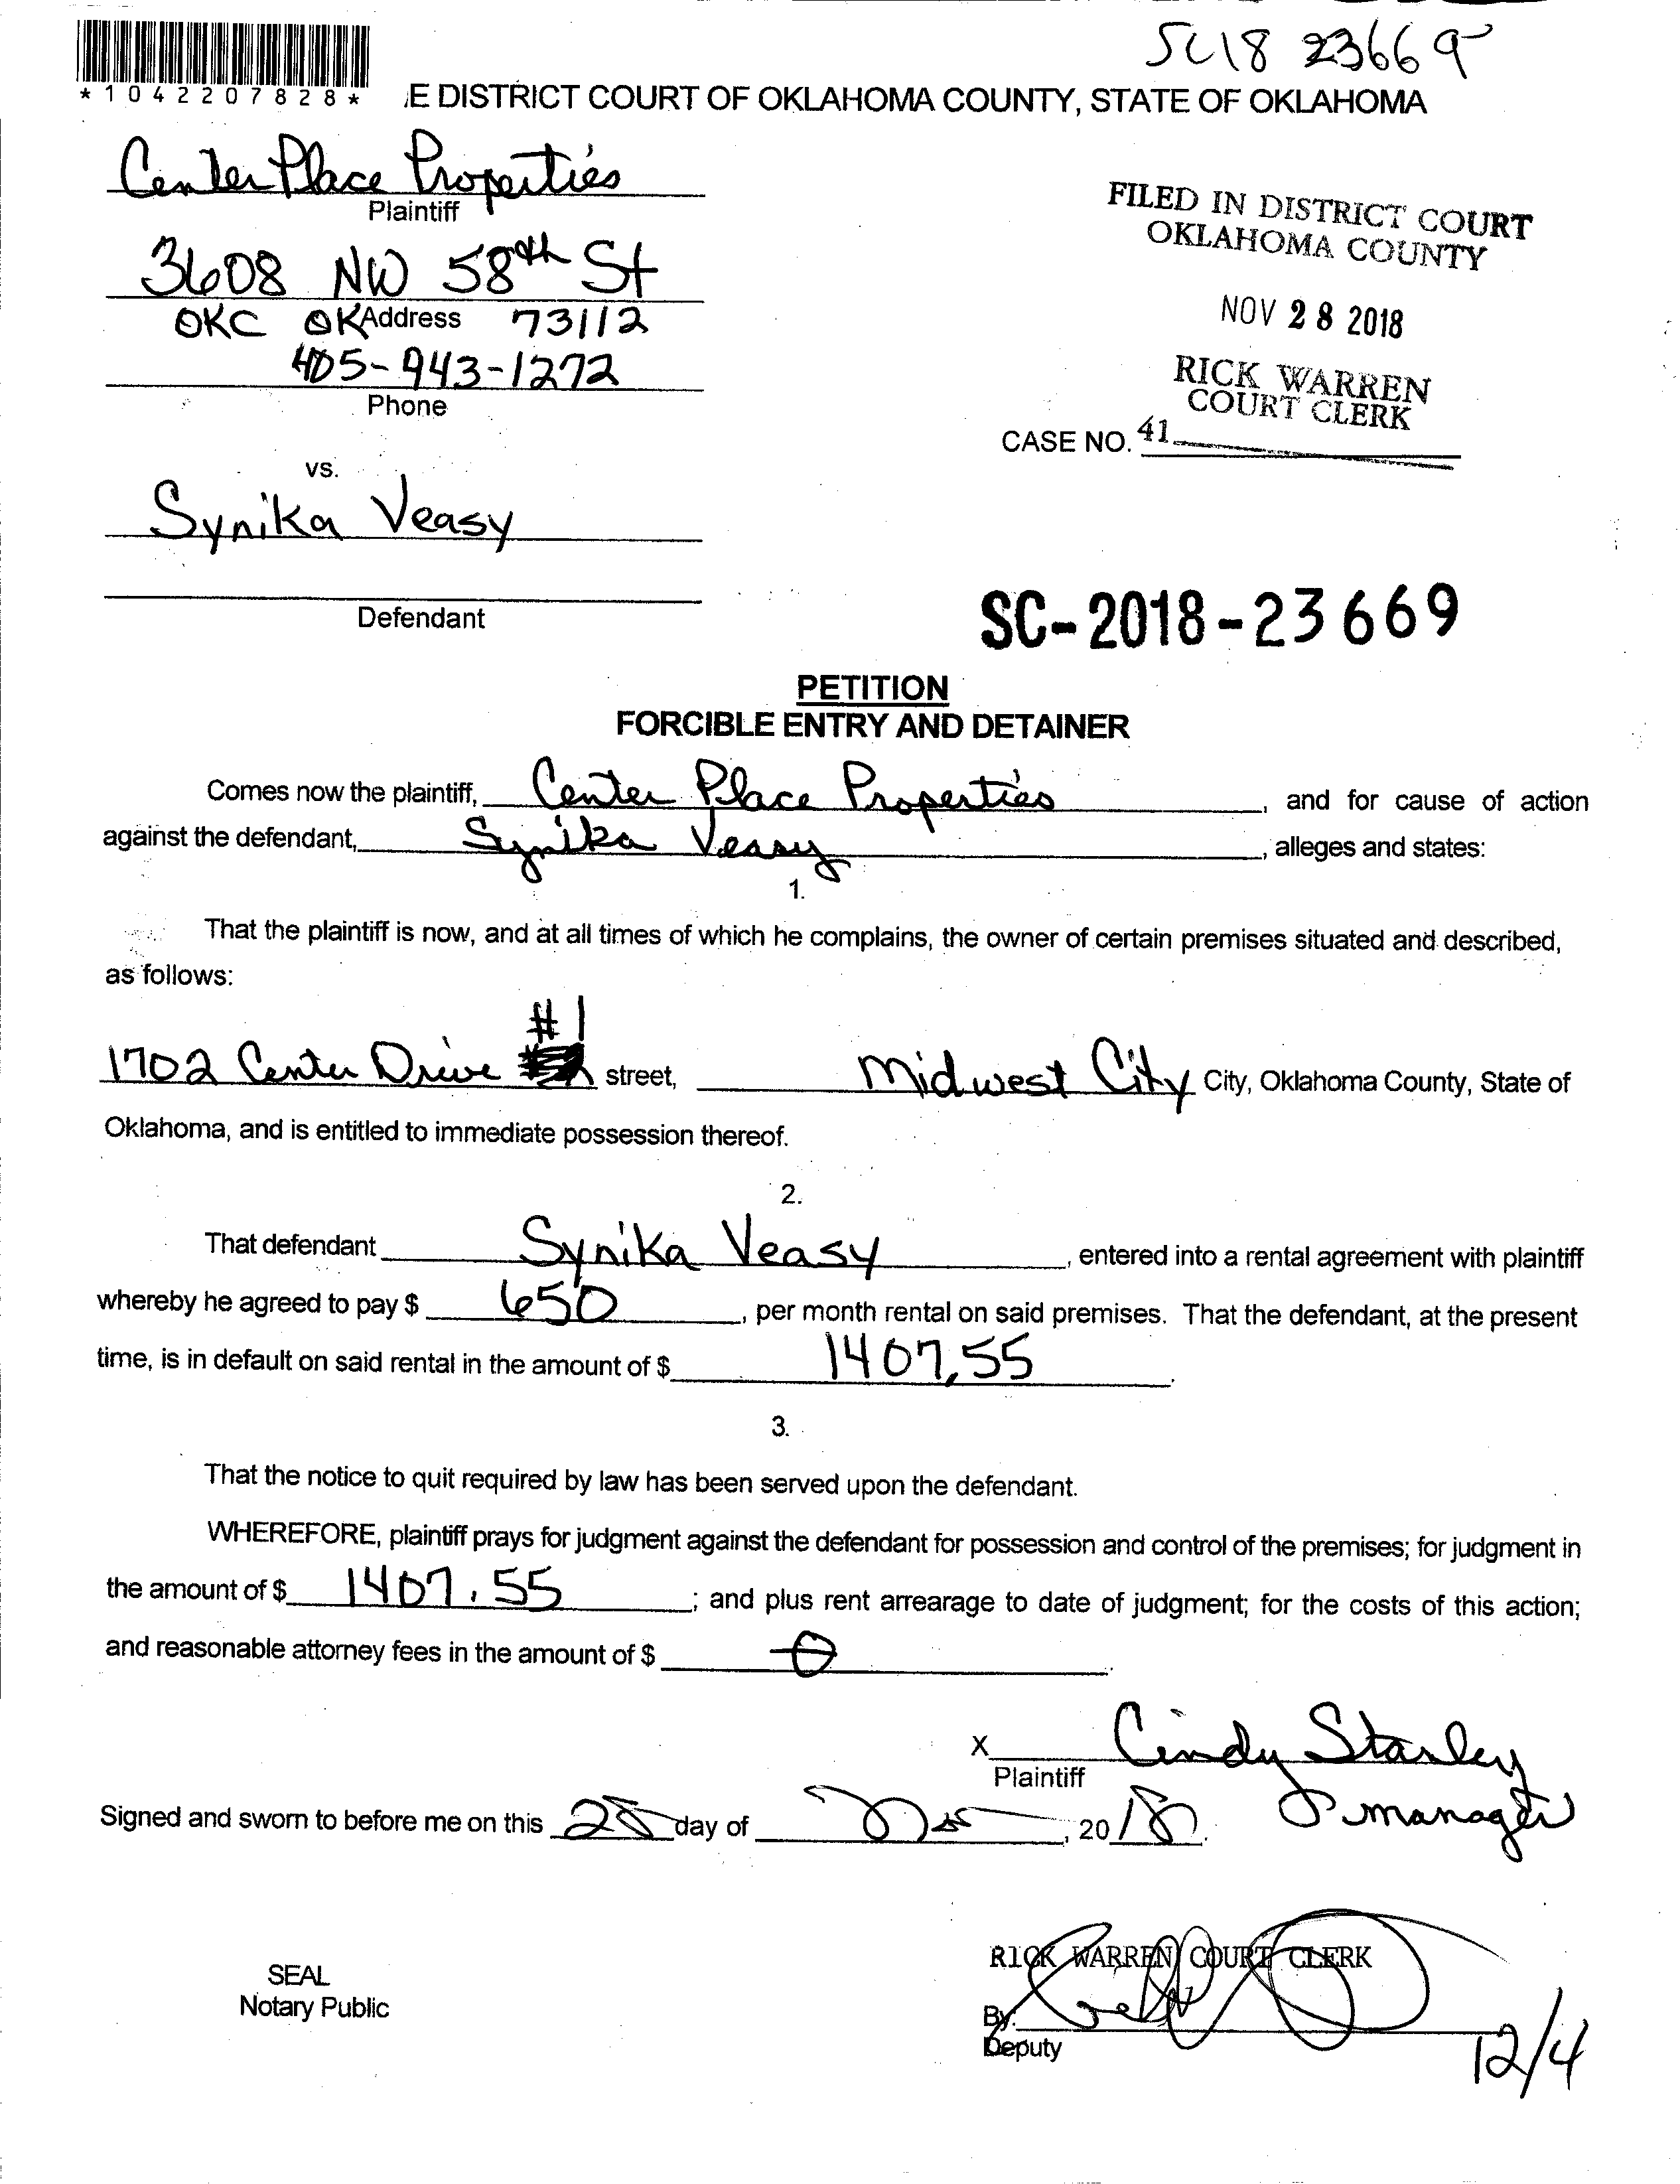 SC18 23669
*1042207828*
E DISTRICT COURT OF OKLAHOMA COUNTY, STATE OF OKLAHOMA
Center Place Properties
Plaintiff
3608 NW 58th St
OKC OK Address 73112
405-943-1272
Phone
FILED IN DISTRICT COURT
OKLAHOMA COUNTY
NOV 28 2018
RICK WARREN
COURT CLERK
CASE NO. 41
vs.
Synika Veasy
Defendant
SC-2018-23669
PETITION
FORCIBLE ENTRY AND DETAINER
Comes now the plaintiff, Center Place Properties, and for cause of action
against the defendant, Synika Veasy, alleges and states:
1.
That the plaintiff is now, and at all times of which he complains, the owner of certain premises situated and described,
as follows:
#1
1702 Center Drive street, Midwest City City, Oklahoma County, State of
Oklahoma, and is entitled to immediate possession thereof.
2.
That defendant Synika Veasy, entered into a rental agreement with plaintiff
whereby he agreed to pay $ 650, per month rental on said premises. That the defendant, at the present
time, is in default on said rental in the amount of $ 1407.55.
3.
That the notice to quit required by law has been served upon the defendant.
WHEREFORE, plaintiff prays for judgment against the defendant for possession and control of the premises; for judgment in
the amount of $ 1407.55; and plus rent arrearage to date of judgment; for the costs of this action;
and reasonable attorney fees in the amount of $ 0.
X Cindy Stanley
Plaintiff
manager
Signed and sworn to before me on this 28 day of Nov, 2018.
SEAL
Notary Public
RICK WARREN COURT CLERK
By:
Deputy
12/4